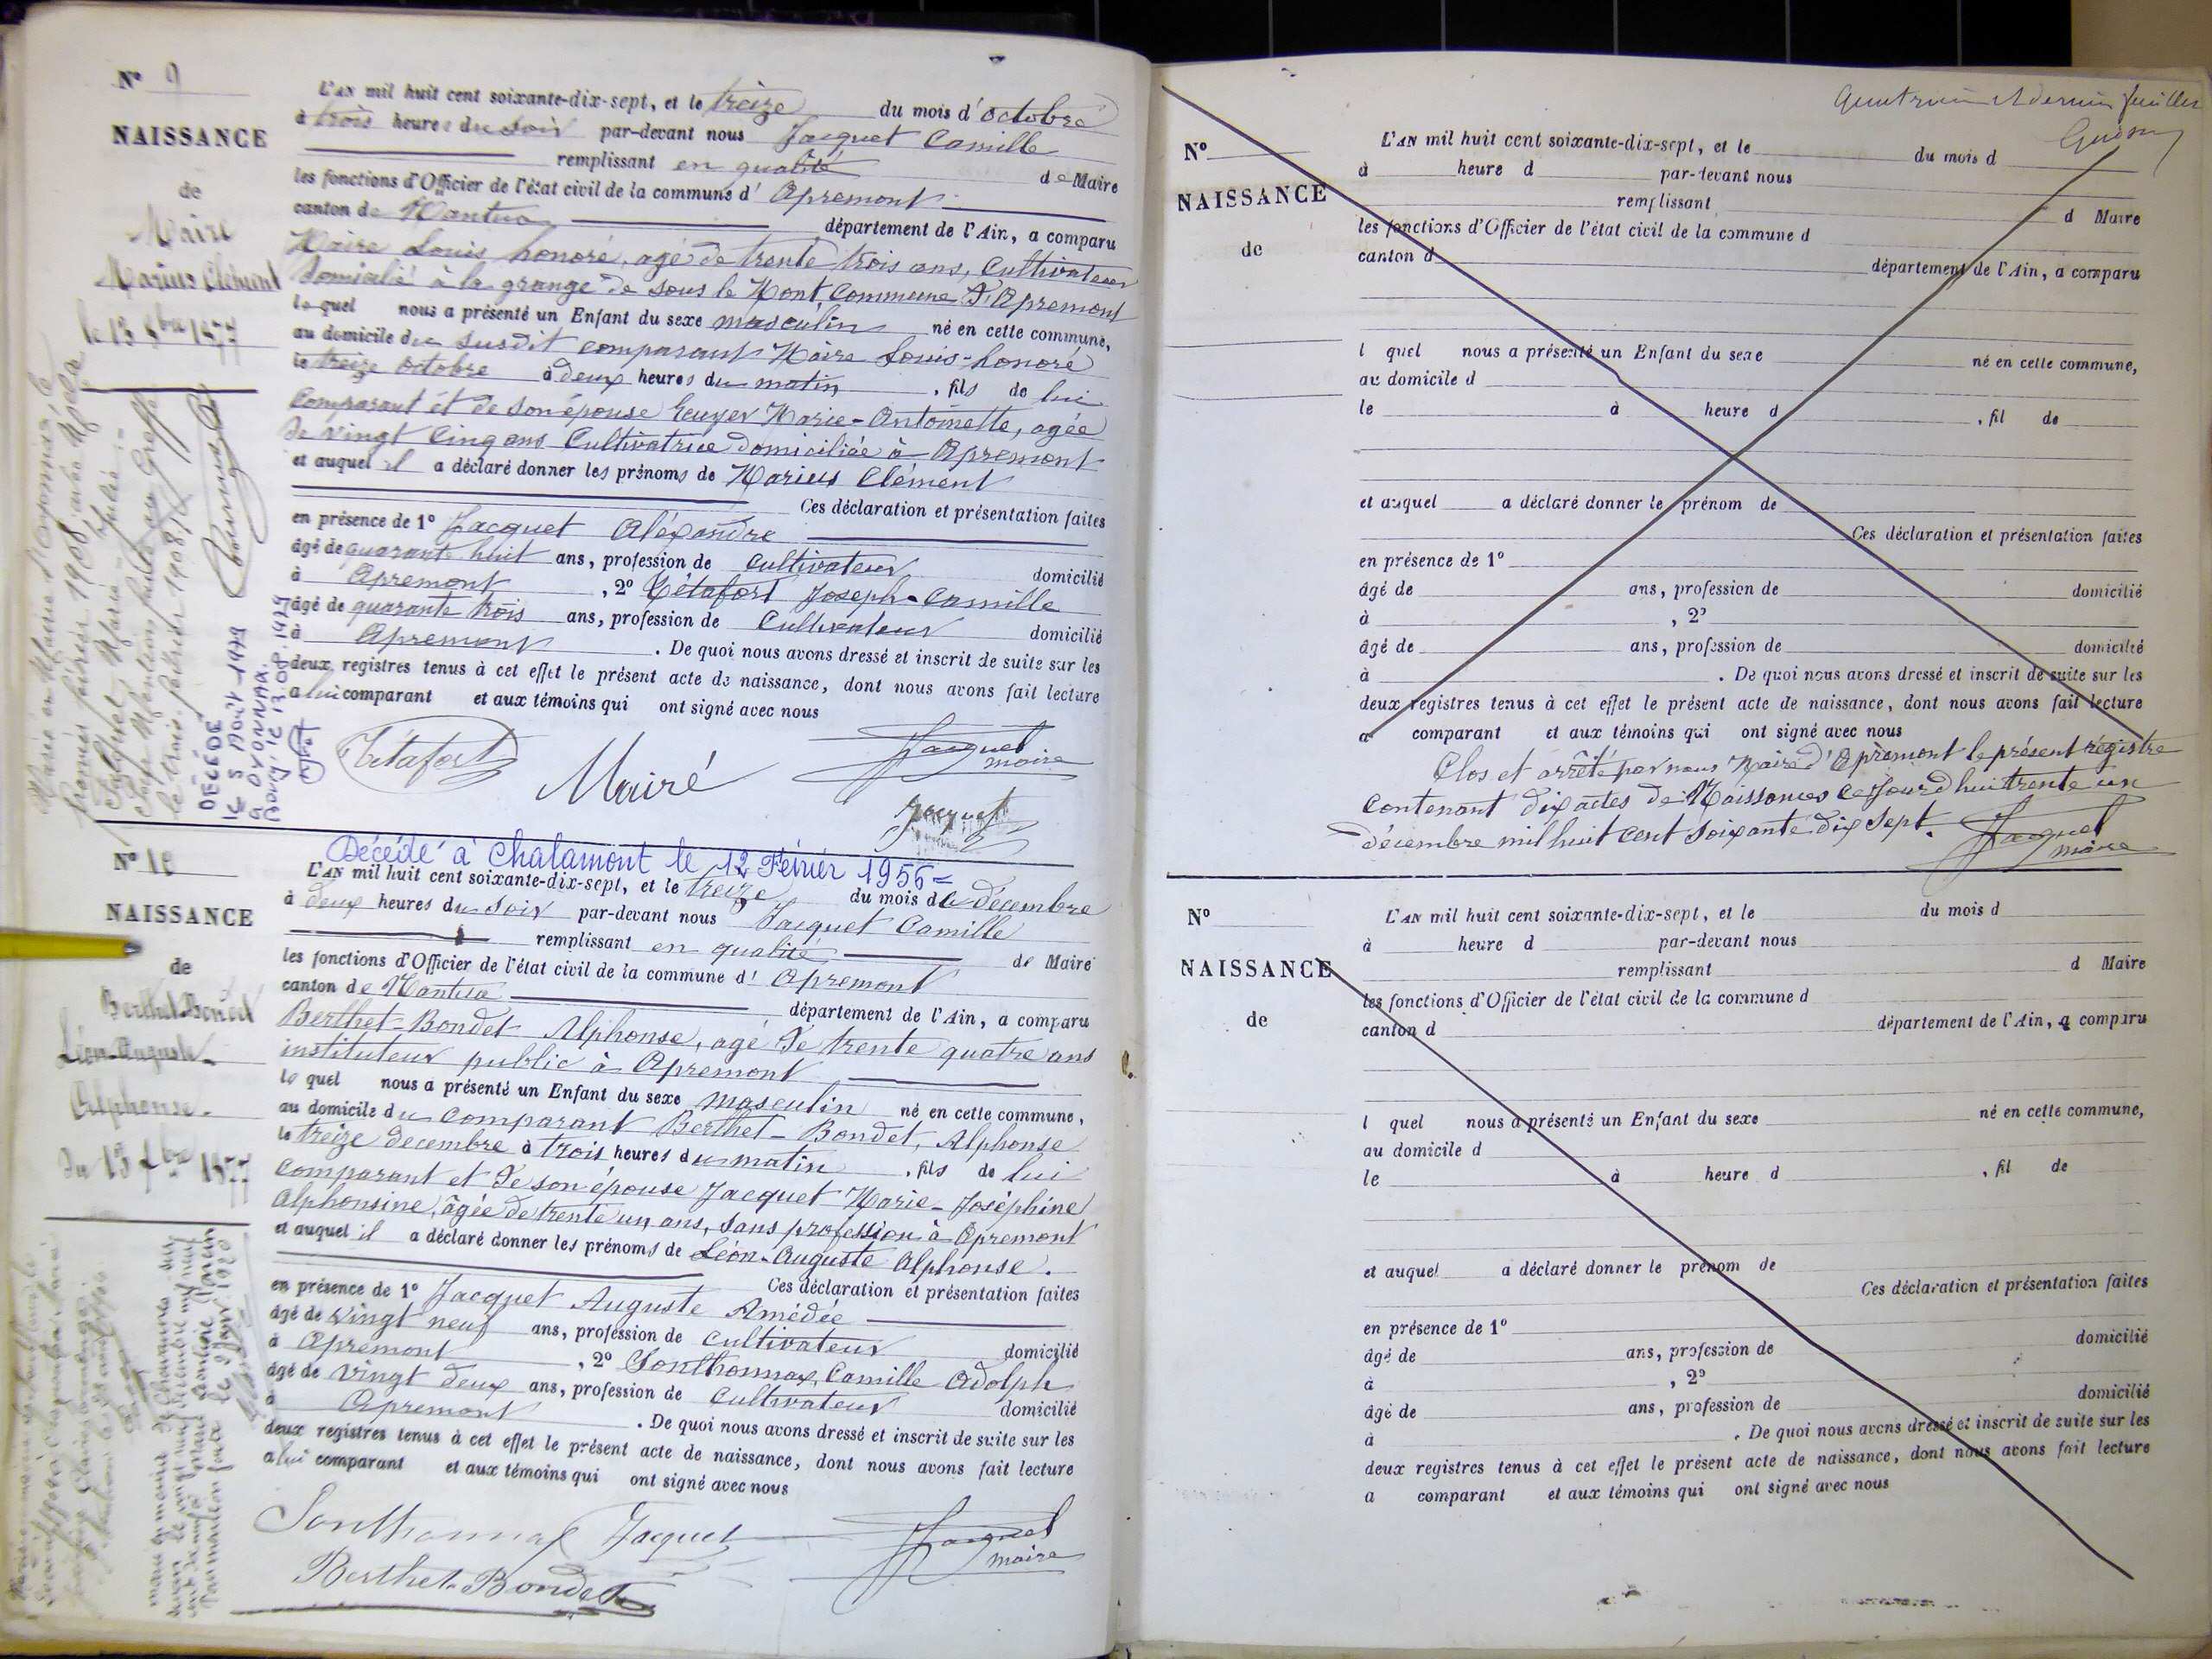 N° 9
NAISSANCE
de
Maire
Marius Clément
le 13 8bre 1877
L'AN mil huit cent soixante-dix-sept, et le treize du mois d'octobre
à trois heures du soir par-devant nous Jacquet Camille
remplissant en qualité de Maire
les fonctions d'Officier de l'état civil de la commune d'Apremont
canton de Nantua département de l'Ain, a comparu
Maire Louis honoré, agé de trente trois ans, Cultivateur
domicilié à la grange de sous le Mont, Commune d'Apremont
lequel nous a présenté un Enfant du sexe masculin né en cette commune,
au domicile du susdit comparant Maire Louis-honoré
le treize octobre à deux heures du matin, fils de lui
Comparant et de son épouse Marie-Antoinette, agée
de vingt Cinq ans Cultivatrice domiciliée à Apremont
et auquel il a déclaré donner les prénoms de Marius Clément
Ces déclaration et présentation faites
en présence de 1° Jacquet Aléxandre
âgé de quarante huit ans, profession de Cultivateur domicilié
à Apremont, 2° Tétafort Joseph-Camille
âgé de quarante trois ans, profession de Cultivateur domicilié
à Apremont. De quoi nous avons dressé et inscrit de suite sur les
deux registres tenus à cet effet le présent acte de naissance, dont nous avons fait lecture
a lui comparant et aux témoins qui ont signé avec nous
DÉCÉDÉ
le 5 AOUT 1949
à OYONNAX
Tétafort Mairé Jacquet
maire
Jacquet
N° 10
NAISSANCE
de
Berthet-Bondet
Léon-Auguste
Alphonse.
Décédé à Chalamont le 12 Février 1956
L'AN mil huit cent soixante-dix-sept, et le treize du mois de décembre
à deux heures du soir par-devant nous Jacquet Camille
remplissant en qualité de Maire
les fonctions d'Officier de l'état civil de la commune d'Apremont
canton de Nantua département de l'Ain, a comparu
Berthet-Bondet Alphonse, agé de trente quatre ans
instituteur public à Apremont
lequel nous a présenté un Enfant du sexe masculin né en cette commune,
au domicile du comparant Berthet-Bondet, Alphonse
le treize decembre à trois heures du matin, fils de lui
comparant et de son épouse Jacquet Marie-Joséphine
Alphonsine, âgée de trente un ans, sans profession à Apremont
et auquel il a déclaré donner les prénoms de Léon-Auguste Alphonse.
Ces déclaration et présentation faites
en présence de 1° Jacquet Auguste Amédée
âgé de vingt neuf ans, profession de Cultivateur domicilié
à Apremont, 2° Sonthonnax, Camille Adolph
âgé de vingt deux ans, profession de Cultivateur domicilié
à Apremont. De quoi nous avons dressé et inscrit de suite sur les
deux registres tenus à cet effet le présent acte de naissance, dont nous avons fait lecture
a lui comparant et aux témoins qui ont signé avec nous
Sonthonnax Jacquet Jacquet
maire
Berthet-Bondet
dernier feuillet
N°
NAISSANCE
de
L'AN mil huit cent soixante-dix-sept, et le du mois d
à heure d par-devant nous
remplissant d Maire
les fonctions d'Officier de l'état civil de la commune d
canton d département de l'Ain, a comparu
l quel nous a présenté un Enfant du sexe né en cette commune,
au domicile d
le à heure d, fil de
et auquel a déclaré donner le prénom de
Ces déclaration et présentation faites
en présence de 1°
âgé de ans, profession de domicilié
à , 2°
âgé de ans, profession de domicilié
à . De quoi nous avons dressé et inscrit de suite sur les
deux registres tenus à cet effet le présent acte de naissance, dont nous avons fait lecture
a comparant et aux témoins qui ont signé avec nous
Clos et arrêté par nous Maire d'Apremont le présent régistre
contenant dix actes de Naissances ce jourd'hui trente un
décembre mil huit cent soixante dix Sept. Jacquet
maire
N°
NAISSANCE
de
L'AN mil huit cent soixante-dix-sept, et le du mois d
à heure d par-devant nous
remplissant d Maire
les fonctions d'Officier de l'état civil de la commune d
canton d département de l'Ain, a comparu
l quel nous a présenté un Enfant du sexe né en cette commune,
au domicile d
le à heure d, fil de
et auquel a déclaré donner le prénom de
Ces déclaration et présentation faites
en présence de 1°
âgé de ans, profession de domicilié
à , 2°
âgé de ans, profession de domicilié
à . De quoi nous avons dressé et inscrit de suite sur les
deux registres tenus à cet effet le présent acte de naissance, dont nous avons fait lecture
a comparant et aux témoins qui ont signé avec nous